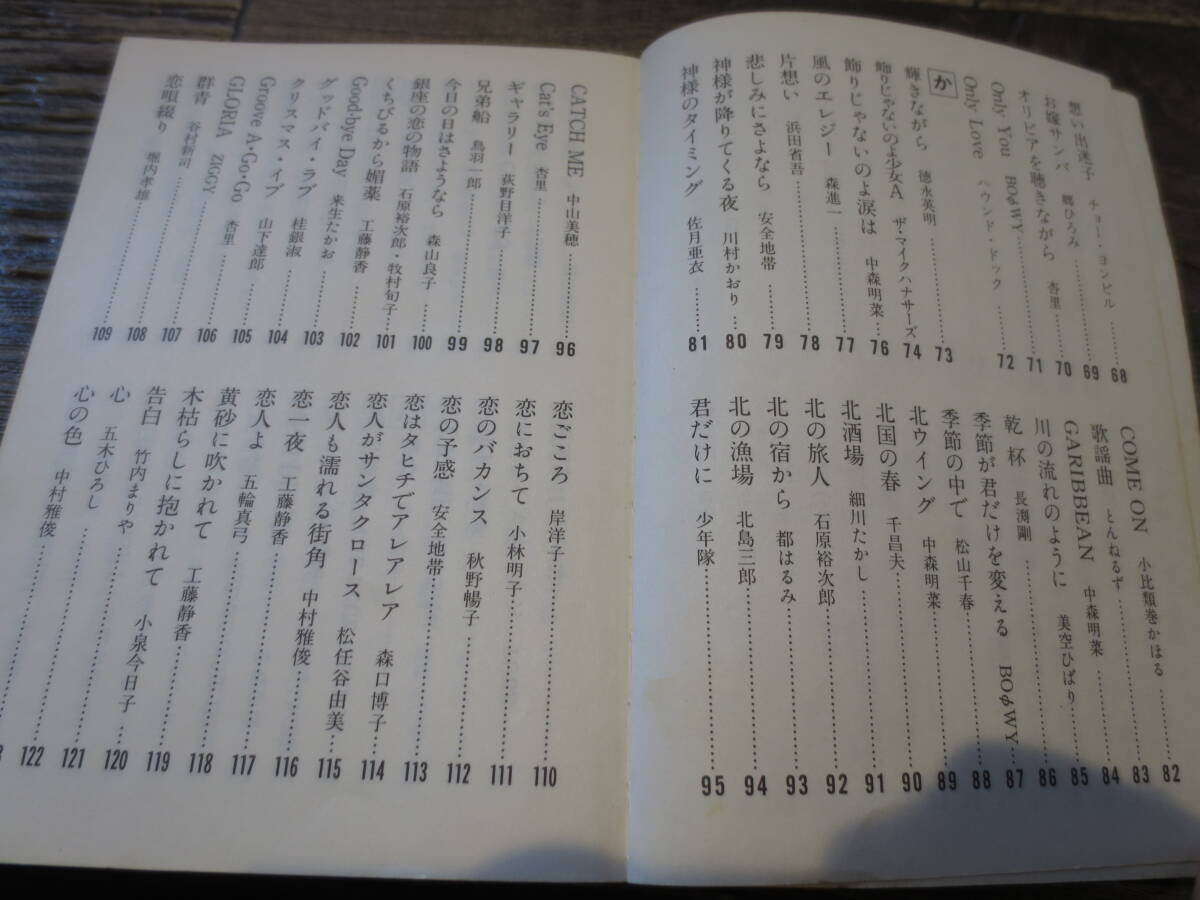 想い出迷子 チョー・ヨンピル……68
お嫁サンバ 郷ひろみ……69
オリビアを聴きながら 杏里……70
Only You BOφWY……71
Only Love ハウンド・ドック……72
か
輝きながら 徳永英明……73
飾りじゃないの少女A ザ・マイクハナサーズ……74
飾りじゃないのよ涙は 中森明菜……76
風のエレジー 森進一……77
片想い 浜田省吾……78
悲しみにさよなら 安全地帯……79
神様が降りてくる夜 川村かおり……80
神様のタイミング 佐月亜衣……81
COME ON 小比類巻かほる……82
歌謡曲 とんねるず……83
GARIBBEAN 中森明菜……84
川の流れのように 美空ひばり……85
乾杯 長渕剛……86
季節が君だけを変える BOφWY……87
季節の中で 松山千春……88
北ウイング 中森明菜……89
北国の春 千昌夫……90
北酒場 細川たかし……91
北の旅人 石原裕次郎……92
北の宿から 都はるみ……93
北の漁場 北島三郎……94
君だけに 少年隊……95
CATCH ME 中山美穂……96
Cat's Eye 杏里……97
ギャラリー 荻野目洋子……98
兄弟船 鳥羽一郎……99
今日の日はさようなら 森山良子……100
銀座の恋の物語 石原裕次郎・牧村旬子……101
くちびるから媚薬 工藤静香……102
Good-bye Day 来生たかお……103
グッドバイ・ラブ 桂銀淑……104
クリスマス・イブ 山下達郎……105
Groove A・Go・Go 杏里……106
GLORIA ZIGGY……107
群青 谷村新司……108
恋唄綴り 堀内孝雄……109
恋ごころ 岸洋子……110
恋におちて 小林明子……111
恋のバカンス 秋野暢子……112
恋の予感 安全地帯……113
恋はタヒチでアレアレア 森口博子……114
恋人がサンタクロース 松任谷由美……115
恋人も濡れる街角 中村雅俊……116
恋一夜 工藤静香……117
恋人よ 五輪真弓……118
黄砂に吹かれて 工藤静香……119
木枯らしに抱かれて 小泉今日子……120
告白 竹内まりや……121
心 五木ひろし……122
心の色 中村雅俊……3